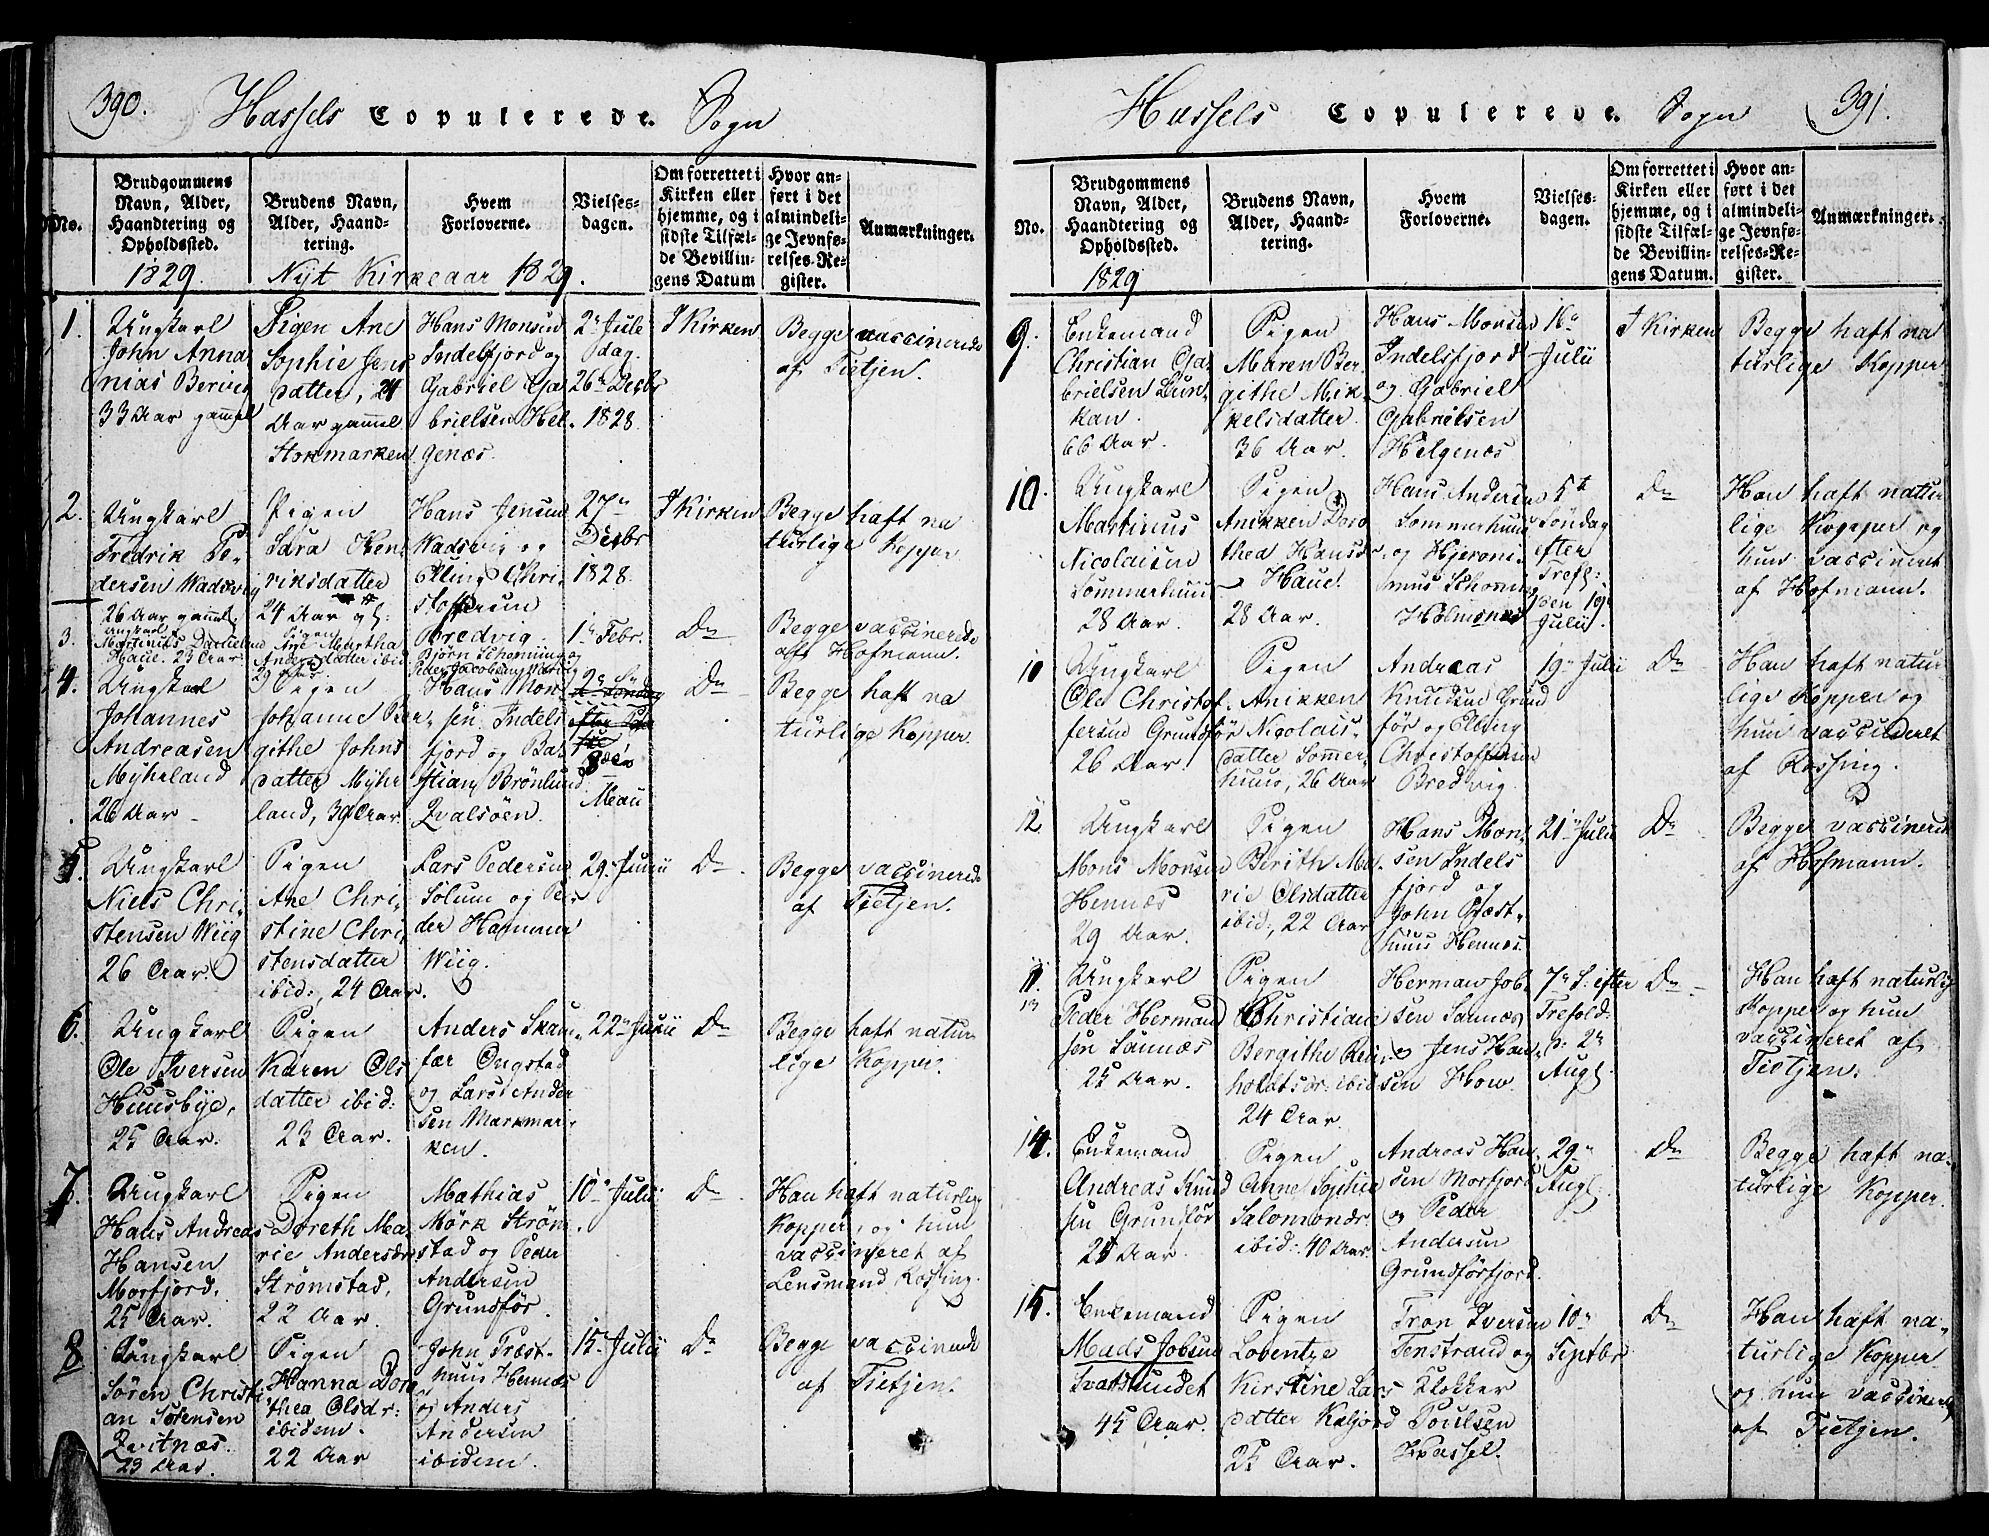 390. Hassels Copulerede. Sogn
No.
Brudgommens
Navn, Alder,
Haandtering og
Opholdssted.
1829.
Brudens Navn,
Alder, Haand-
tering.
Nyt Kirkeaar 1829.
Hvem
Forloverne.
Vielses-
dagen.
Om forrettet i
Kirken eller
hjemme, og i
sidste Tilfæl-
de Bevillin-
gens Datum
Hvor an-
ført i det
almindeli-
ge Jevnfø-
relses-Re-
gister.
Anmærkninger.
1.
Ungkarl
John Anna
nias
33 Aar gammel
Pigen Ane
Sophie Jens
datter, 24
Aar gammel
Stokmarken
Hans Monsen
Indelfjord og
Gabriel Ga-
brielsen Hel-
genæs.
2n Jule
dag.
26n Decbr
1828.
I Kirken
Begge vaccinerede
af Tietjen.
2.
Ungkarl
Fredrik Pe-
dersen Wadsvig
26 Aar gammel.
Pigen
Sara Hen
riksdatter
24 Aar gl:
Hans Jensen
Wadsvig og
Elling Chri-
stoffersen
Bredvig.
27n
Decbr
1828.
I Kirken
Begge haft na
turlige Kopper
3.
Ungkarl
Martinus Danielsen
Haue. 23 Aar.
Pigen
Ane Martha
Andersdatter ibid
29 Aar.
Björn Schoning og
Peder Jacobsen
1n Febr.
Dn
Begge vaccinerede
aff Hofmann.
4.
Ungkarl
Johannes
Andreasen
Myhrland
26 Aar
Pigen
Johanne Ber-
githe Johns
datter Myhr
land, 39 Aar
Hans Mon-
sen Indels
fjord og Ba-
stian Brönlund
Qvalsöen.
2n S:
Dn
Begge haft na
turlige Kopper
5.
Ungkarl
Niels Chri-
stensen Wiig
26 Aar.
Pigen
Ane Chri-
stine Chri-
stensdatter
ibid:, 24 Aar.
Lars Pedersen
Solum og Pe-
der Hammer
Wiig.
29n Junii
Dn
Begge vaccinerede
af Tietjen.
6.
Ungkarl
Ole Iversen
Huusbye,
25 Aar.
Pigen
Karen Ols
datter ibid:
23 Aar.
Anders Skau-
fær Ongstad
og Lars Ander
sen Markmar-
ken.
22n Junii
Dn
Begge haft natur-
lige Kopper.
7.
Ungkarl
Hans Andreas
Hansen
Morfjord.
25 Aar.
Pigen
Doreth Ma-
rie Andersdr
Strömstad,
22 Aar.
Mathias
Mörk Ström
stad og Peder
Andersen
Grundför.
10n Julii
Dn
Han haft naturlige
Kopper, og hun
vaccineret af
Lensmand Rossing.
8
Ungkarl
Sören Christi
an Sörensen
Qvitnæs.
23 Aar.
Pigen
Hanna Doro
thea Olsdr:
ibidem.
22 Aar
John Præst-
huus Hennæs
og Anders
Andersen
ibidem.
15n Julii
Dn
Begge vaccinerede
af Tietjen.
Hassels Copulerede. Sogn 391.
No.
Brudgommens
Navn, Alder,
Haandtering og
Opholdssted.
1829
Brudens Navn,
Alder, Haand-
tering.
Hvem
Forloverne.
Vielses-
dagen.
Om forrettet i
Kirken eller
hjemme, og i
sidste Tilfæl-
de Bevillin-
gens Datum.
Hvor an-
ført i det
almindeli-
ge Jevnfø-
relses-Re-
gister.
Anmærkninger.
9.
Enkemand
Christian Ga-
brielsen Dun-
kan.
66 Aar.
Pigen
Maren Ber-
githe Mik-
kelsdatter
36 Aar.
Hans Monsen
Indelsfjord
og Gabriel
Gabrielsen
Helgenæs
16n
Julii
I Kirken
Begge haft na
turlige Kopper
10.
Ungkarl
Martinus
Nicolaisen
Sommerhuus
28 Aar.
Pigen
Anikken Doro
thea Hansdr.
Haue.
28 Aar.
Hans Andersen
Sommerhuus
og Hjeroni-
mus Schoning
Holmsnes
5t
Söndag
efter
Tref:
den 19
Julii.
Dn
Han haft natur
lige Kopper og
hun vaccineret
af Hofmann.
Ungkarl
Ole Christof-
fersen Grundför
26 Aar.
Pigen
Anikken
Nicolais-
datter Sommer-
huus, 26 Aar
Andreas
Knudsen Grund
för og Elling
Christoffersen
Bredvig
19n Julii
Dn
Han haft natur-
lige Kopper og
hun vaccineret
af Rossing.
12
Ungkarl
Mons Monsen
Hennæs
29 Aar.
Pigen
Berith Ma-
rie Olsdatter
ibid:, 22 Aar
Hans Mon-
sen Indels
fjord og
John Præst-
huus Hennes.
21n Julii
Dn
Begge vaccinerede
af Hofmann.
13
Ungkarl
Peder Herman
sen Sannæs
25 Aar.
Pigen
Christiane
Bergithe Rein-
holdtsdr. ibid
24 Aar.
Herman Job-
sen Sannæs
og Jens Han-
sen How.
7n S: efter
Trefold:
d: 2n
Augt.
Dn
Han haft naturlig
Kopper og hun
vaccineret af
Tietjen.
14.
Enkemand
Andreas Knud
sen Grundför
25 Aar.
Pigen
Anne Sophie
Salomonsdr.
ibid: 40 Aar
Andreas Han-
sen Morfjord
og Peder
Andersen
Grundförfjord.
29n
Augt.
Dn
Begge haft na-
turlige Kopper.
15.
Enkemand
Mads Jobsen
Svartsundet
45 Aar.
Pigen
Lorentze
Kirstine Lars
datter Kaljord
25 Aar.
Tron Iversen
Tenstrand og
Klokker
Poulsen
Hassel.
10n
Septbr
Dn
Han haft na-
turlige Kopper
og hun vaccineret
af Tietjen.